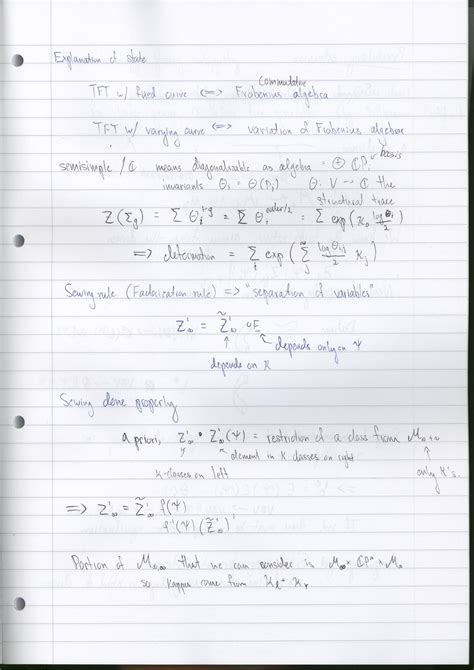 Explanation of state
Commutative
TFT w/ fixed curve <=> Frobenius algebra
TFT w/ varying curve <=> variation of Frobenius algebrae
basis
semisimple / ℂ means diagonalizable as algebra = ⊕ ℂP_i
invariants θ_i = Θ(P_i) Θ: V → ℂ the
structural trace
Z(Σ_g) = Σ θ_i^{1-g} = Σ θ_i^{euler/2} = Σ exp(κ_0 log θ_i / 2)
=> deformation = Σ_i exp(Σ_j^∞ log θ_{ij} / 2 κ_j)
Sewing rule (Factorization rule) => "separation of variables"
Z'_∞ = Z̃'_∞ ∘ E
depends only on ψ
depends on κ
Sewing done properly
a priori, Z'_∞ • Z'_∞(ψ) = restriction of a class from M_{∞+∞}
element in κ classes on right
only κ's.
κ-classes on left
=> Z'_∞ = Z̃'_∞ f(ψ)
f^{-1}(ψ)(Z̃'_∞)'
Portion of M_{∞,∞} that we can consider is M_∞ × ℂP^∞ × M_∞
so kappas come from κ_l + κ_r